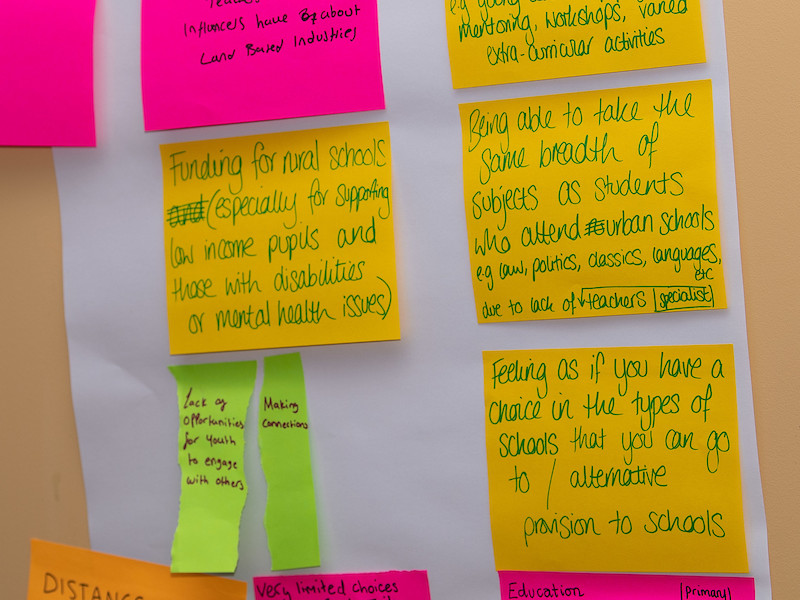 Influencers have about
Land Based Industries
e.g
mentoring, workshops, varied
extra-curricular activities
Funding for rural schools
and (especially for supporting
low income pupils and
those with disabilities
or mental health issues)
Being able to take the
same breadth of
subjects as students
who attend urban schools
e.g law, politics, classics, languages,
etc
due to lack of teachers specialist
Lack of
opportunities
for youth
to engage
with others
Making
connections
Feeling as if you have a
choice in the types of
schools that you can go
to / alternative
provision to schools
DISTANCE
Very limited choices
Education (Primary)